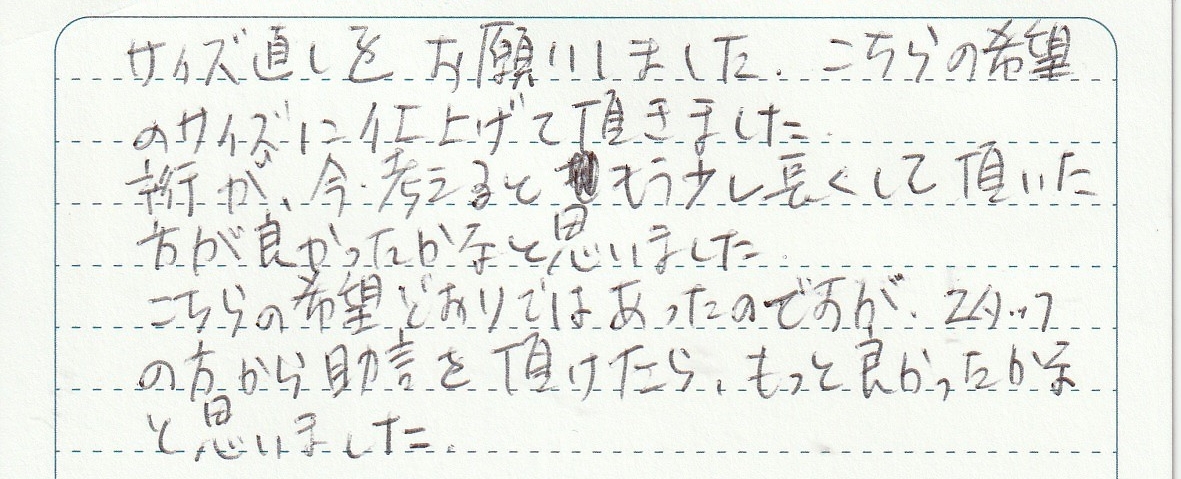 サイズ直しを お願いしました. こちらの希望
のサイズに仕上げて頂きました.
裄が、今・考えると もう少し長くして頂いた
方が良かったかなと思いました.
こちらの希望どおりではあったのですが、スタッフ
の方から助言を頂けたら、もっと良かったかな
と思いました.